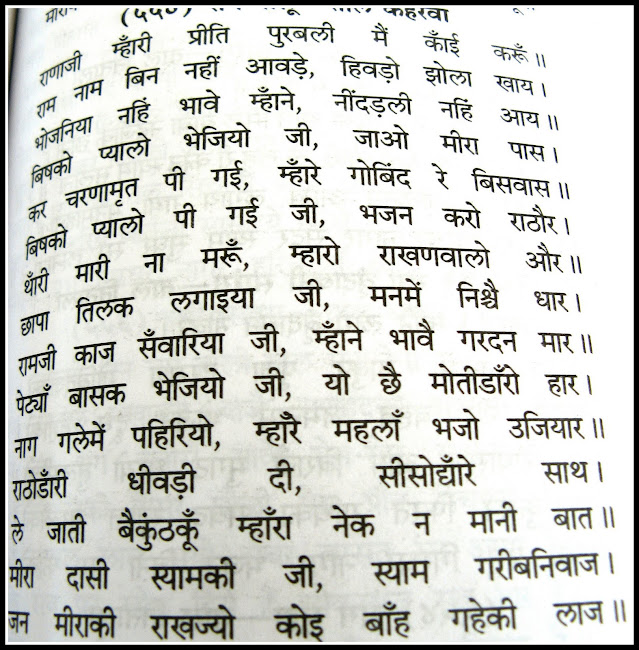 राणाजी म्हाँरी प्रीति पुरबली मैं काँई करूँ॥
राम नाम बिन नहीं आवड़े, हिवड़ो झोला खाय।
भोजनिया नहिं भावे म्हाँने, नींदड़ली नहिं आय॥
बिषको प्यालो भेजियो जी, जाओ मीरा पास।
कर चरणामृत पी गई, म्हाँरे गोबिंद रे बिसवास॥
बिषको प्यालो पी गई जी, भजन करो राठौर।
थाँरी मारी ना मरूँ, म्हारो राखणवालो और॥
छापा तिलक लगाइया जी, मनमें निश्चै धार।
रामजी काज सँवारिया जी, म्हाँने भावै गरदन मार॥
पेट्याँ बासक भेजियो जी, यो छै मोतीडाँरो हार।
नाग गलेमें पहिरियो, म्हाँरे महलाँ भजो उजियार॥
राठोडाँरी धीवड़ी दी, सीसोद्याँरे साथ।
ले जाती बैकुंठकूँ म्हाँरा नेक न मानी बात॥
मीरा दासी स्यामकी जी, स्याम गरीबनिवाज।
जन मीराकी राखज्यो कोइ बाँह गहेकी लाज॥